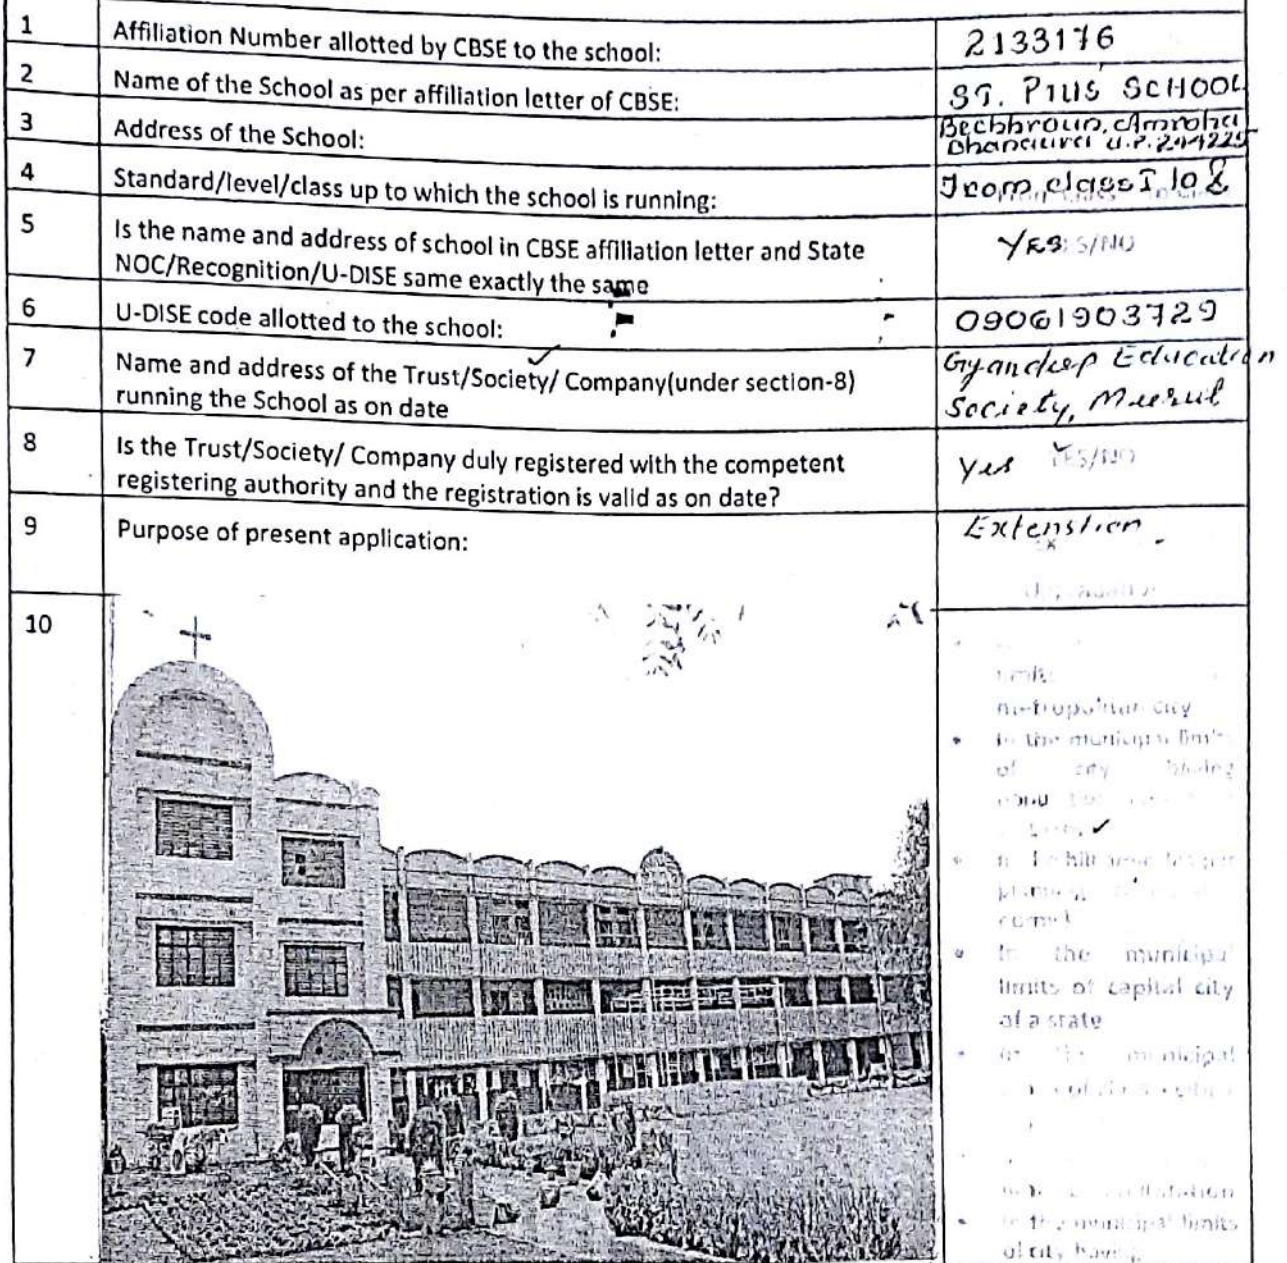 1 Affiliation Number allotted by CBSE to the school: 2133176
2 Name of the School as per affiliation letter of CBSE: ST. PIUS SCHOOL
3 Address of the School: Bechhraun, Amroha
Dhanaura U.P. 244225
4 Standard/level/class up to which the school is running: From class I to 8
5 Is the name and address of school in CBSE affiliation letter and State YES S/NO
NOC/Recognition/U-DISE same exactly the same
6 U-DISE code allotted to the school: 09061903729
7 Name and address of the Trust/Society/ Company(under section-8) Gyandeep Education
running the School as on date Society, Meerut
8 Is the Trust/Society/ Company duly registered with the competent Yes YES/NO
registering authority and the registration is valid as on date?
9 Purpose of present application: Extenstion
10
limits
metropolitan city
In the municipal limits
of city having
In the municipal
limits of capital city
of a state
municipal
In the municipal limits
of city having